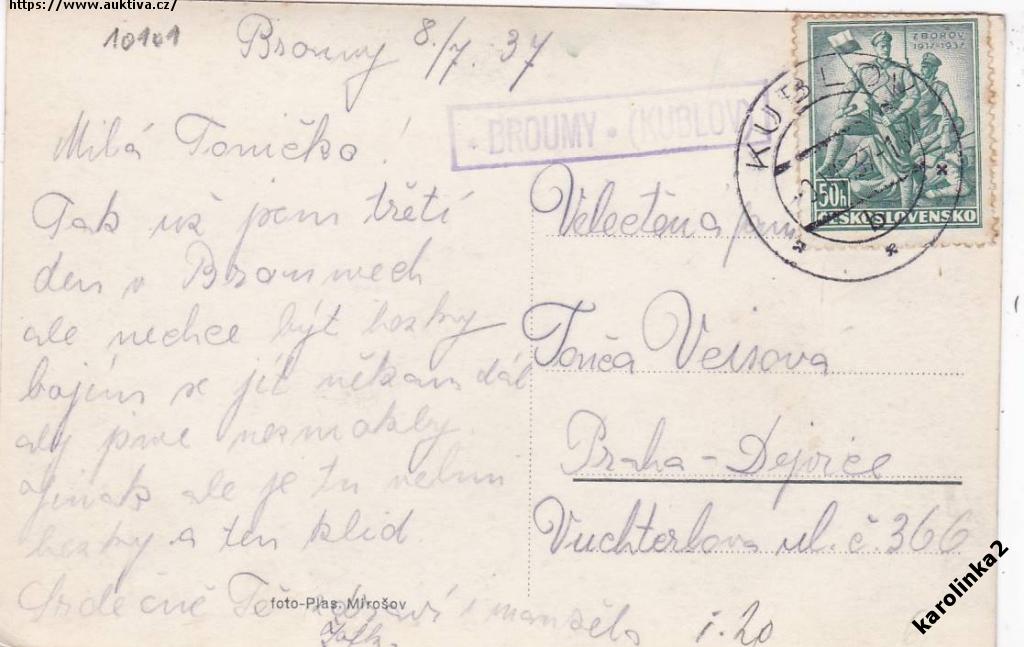 https://www.auktiva.cz/
10101
Broumy 8./7. 37
ZBOROV
1917-1937
50h
ČESKOSLOVENSKO
KUBLOV
• BROUMY • (KUBLOV)
Milá Toničko!
Tak už jsem třetí
den v Broumech
ale nechce být hezky
bojím se jít někam dál
aby jsme nezmokly.
Jinak ale je tu velmi
hezky a ten klid.
Srdečně Tě zdraví i manžela
foto-Plas, Mirošov
Velectěná paní
Tonča Veisova
Praha-Dejvice
Vuchterlova ul. č. 366
1.20
karolinka2